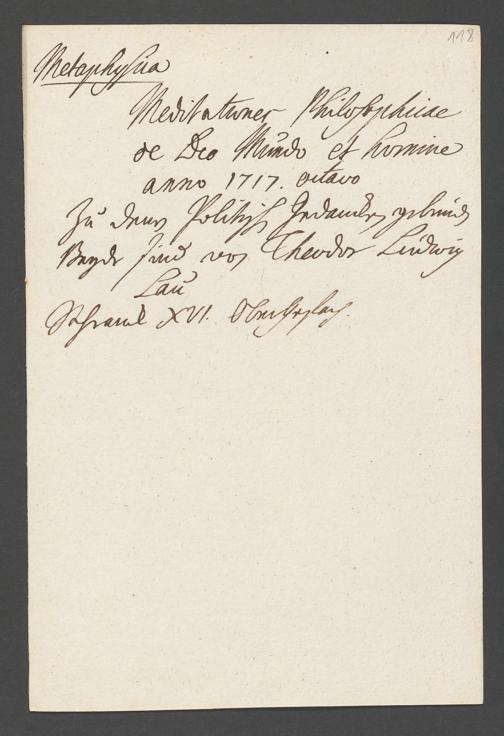 118
Metaphysica
Meditationes Philosophicae
de Deo Mundo et homine
anno 1717. octavo
Zu denen Politisch Gedancken gebund
Beyde sind von Theodor Ludwig
Lau
Schranck XVI.